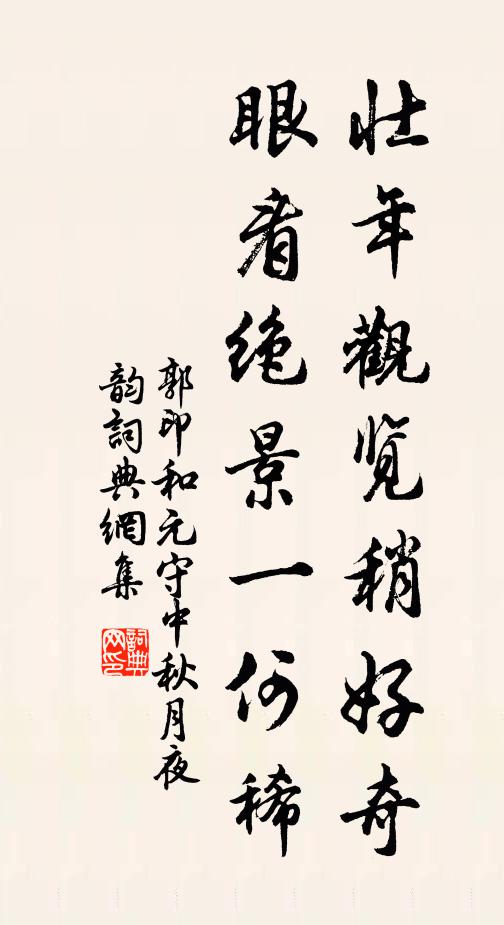 壮年觀览稍好奇
眼看绝景一何稀
郭印和元守中秋月夜
韵詞典網集
詞典网印